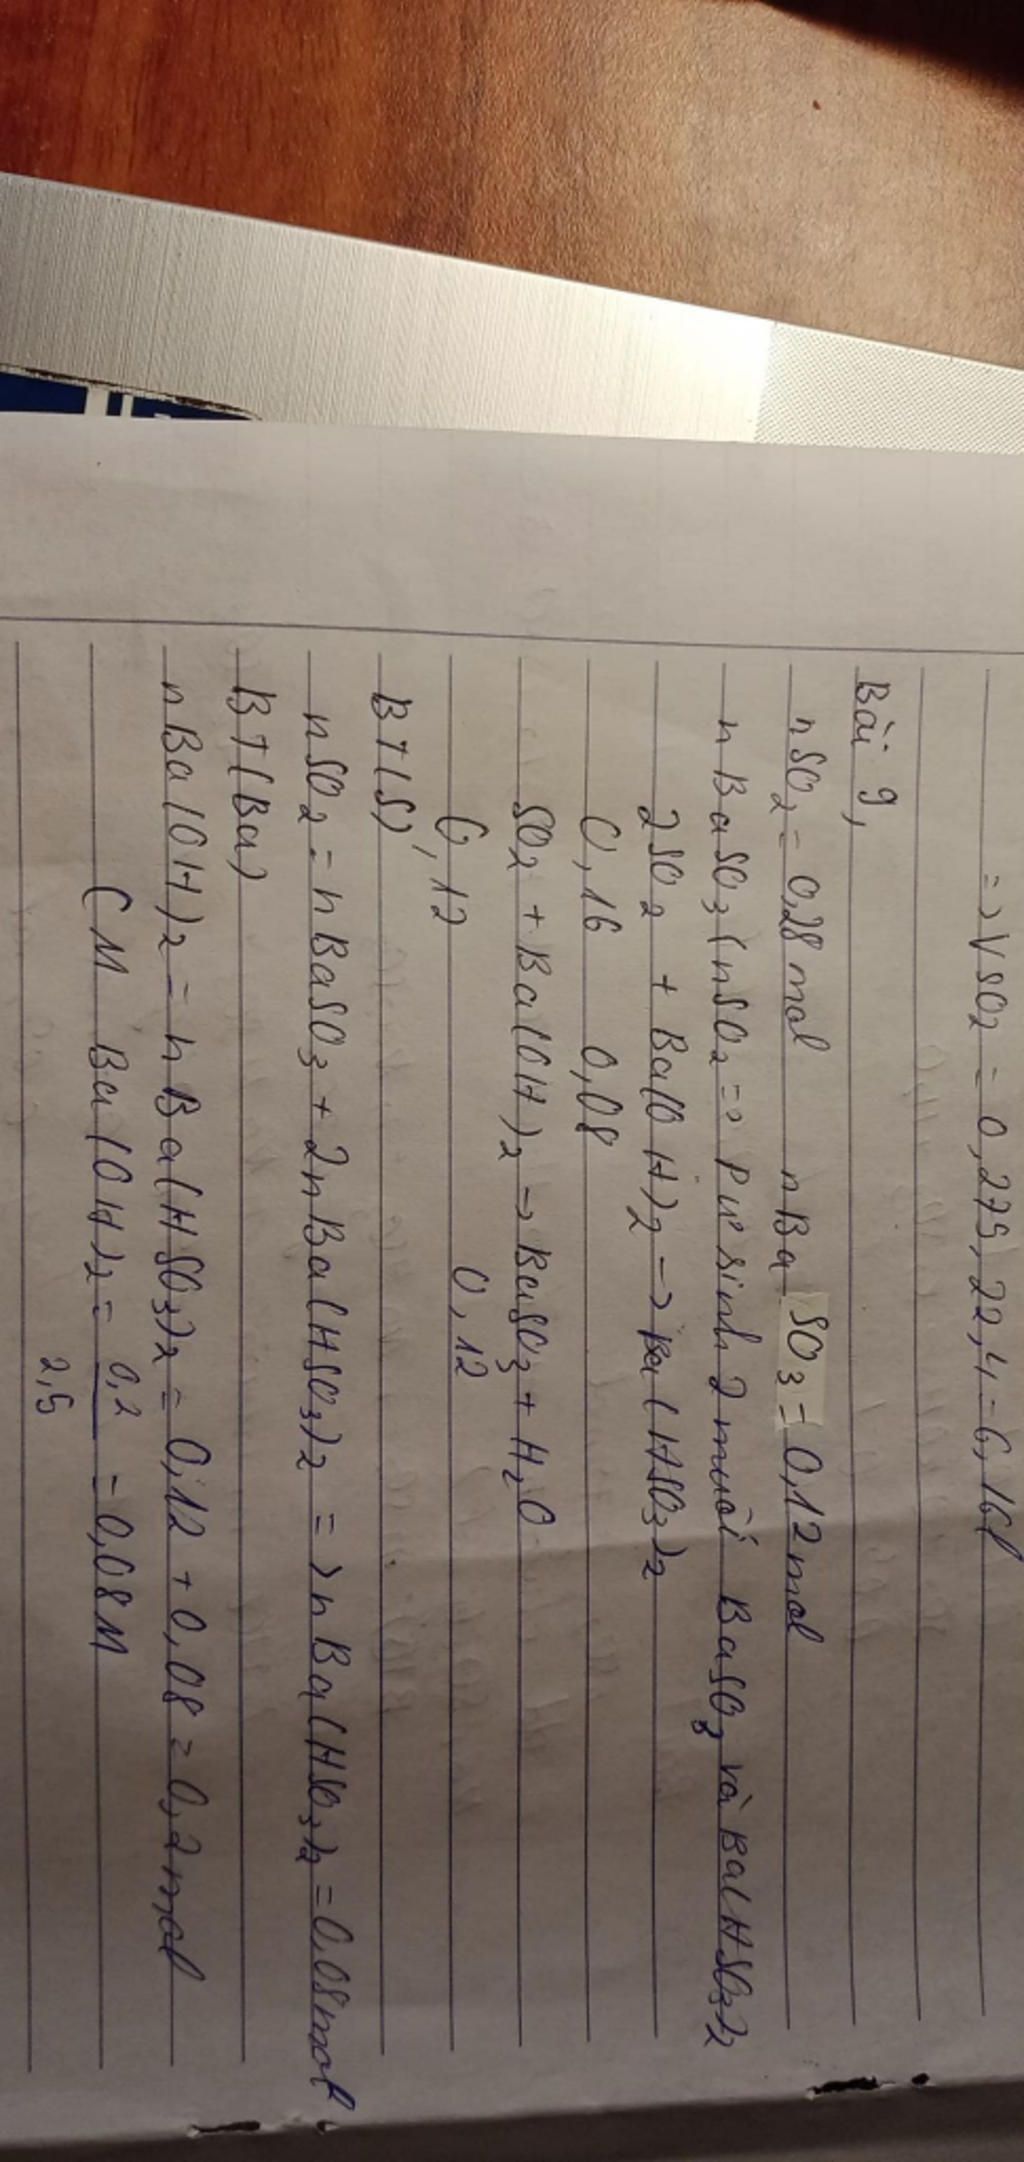 => VSO2 = 0,275.22,4 = 6,16l
Bài 9,
nSO2 = 0,28 mol nBaSO3 = 0,12 mol
nBaSO3 < nSO2 => Pư sinh 2 muối BaSO3 và Ba(HSO3)2
2SO2 + Ba(OH)2 -> Ba(HSO3)2
0,16 0,08
SO2 + Ba(OH)2 -> BaSO3 + H2O
0,12 0,12
BT(S)
nSO2 = nBaSO3 + 2nBa(HSO3)2 => nBa(HSO3)2 = 0,08mol
BT(Ba)
nBa(OH)2 = nBa(HSO3)2 = 0,12 + 0,08 = 0,2 mol
CM Ba(OH)2 = 0,2 / 2,5 = 0,08M